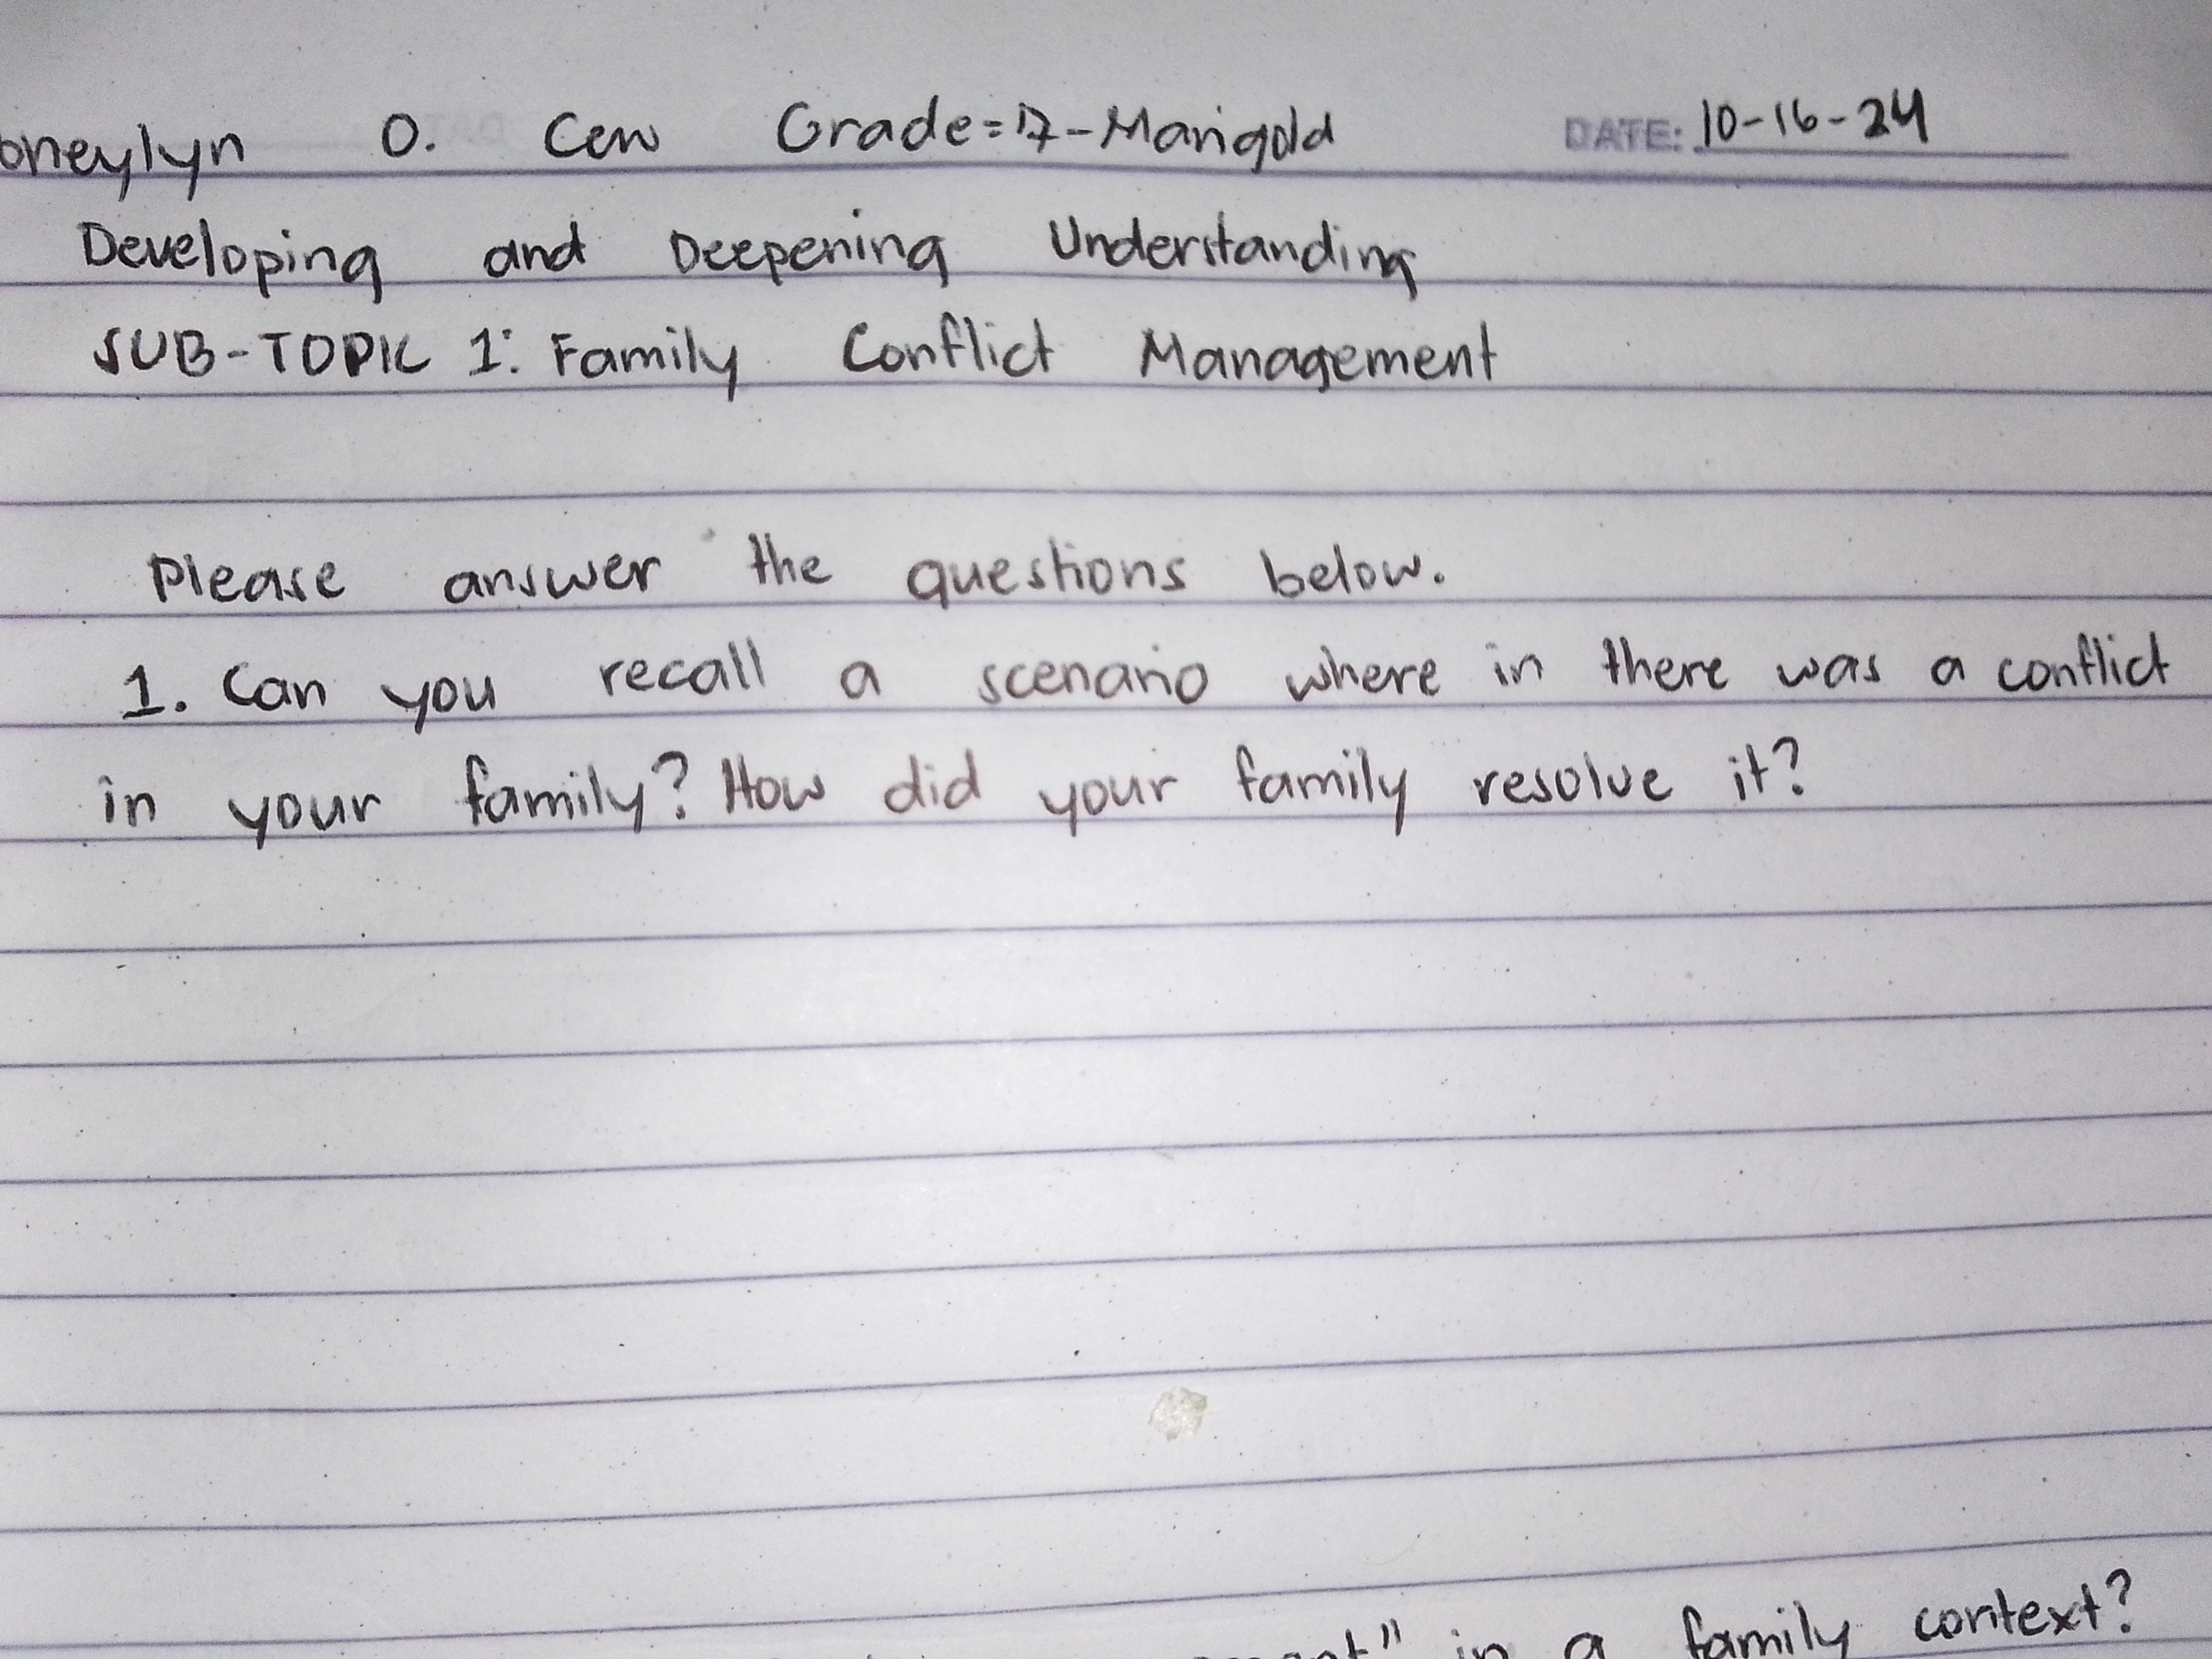 oneylyn O. Cew Grade=7-Marigold DATE: 10-16-24
Developing and Deepening Understanding
SUB-TOPIC 1: Family Conflict Management
Please answer the questions below.
1. Can you recall a scenario where in there was a conflict
in your family? How did your family resolve it?
in a family context?